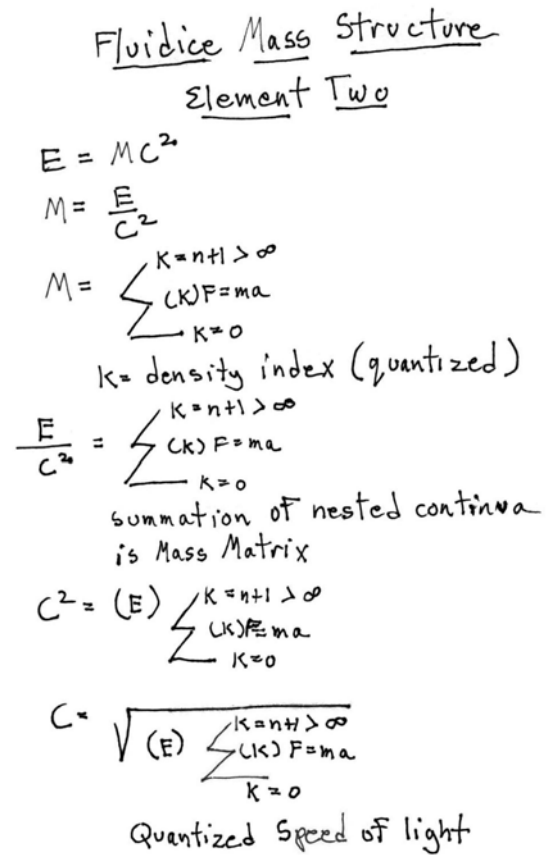 Fluidice Mass Structure
Element Two
E = MC²
M = E/C²
M = Σ K=n+1 > ∞ (K) F=ma K=0
K= density index (quantized)
E/C² = Σ K=n+1 > ∞ (K) F=ma K=0
summation of nested continua
is Mass Matrix
C² = (E) Σ K=n+1 > ∞ (K)F=ma K=0
C = √ (E) Σ K=n+1 > ∞ (K) F=ma K=0
Quantized Speed of light